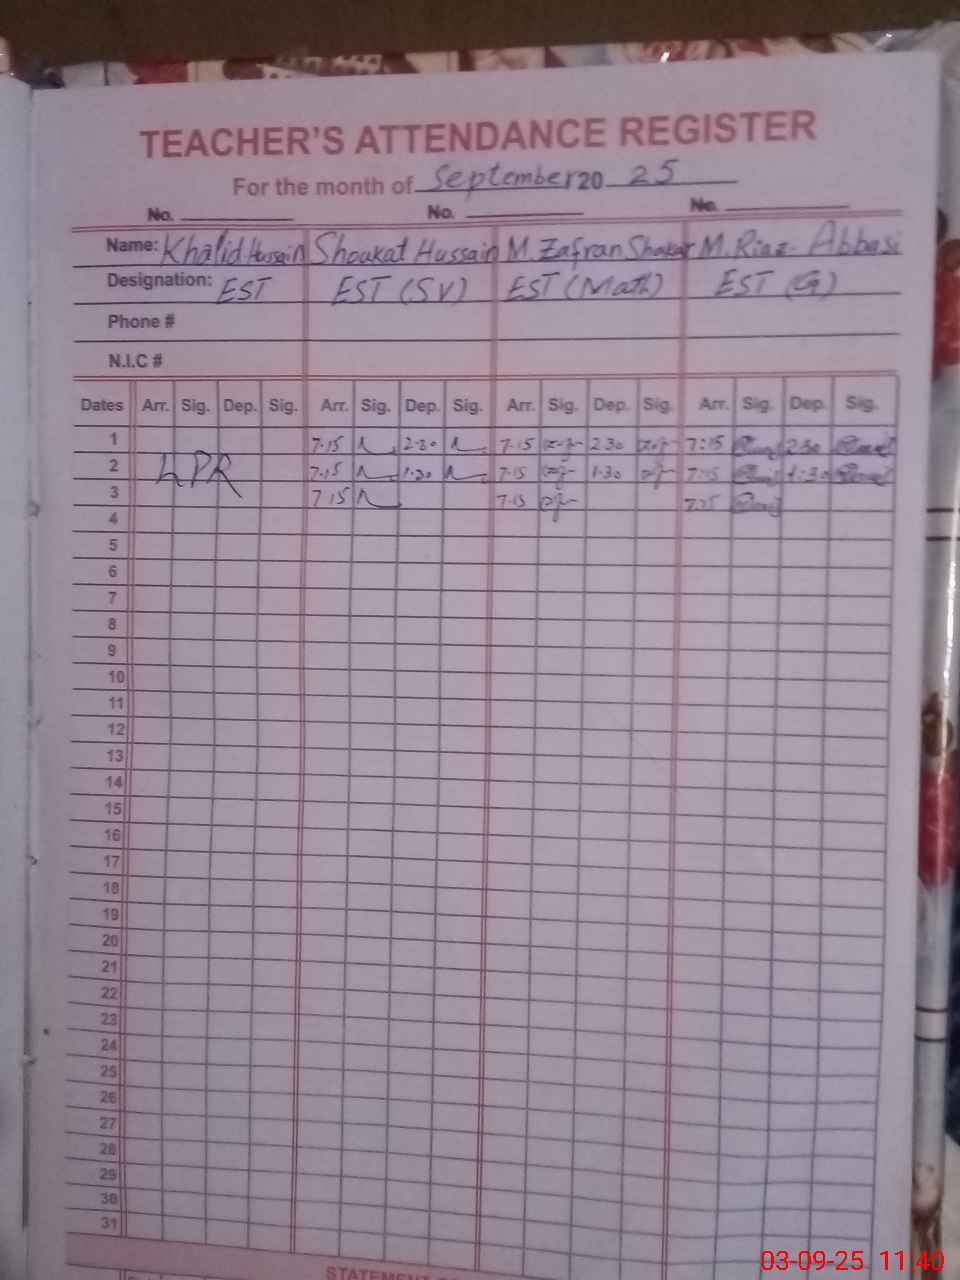 TEACHER'S ATTENDANCE REGISTER
For the month of September 20 25
No. No. No.
Name: Khalid Hussain Shoukat Hussain M. Zafran Shakar M. Riaz Abbasi
Designation: EST EST (SV) EST (Math) EST (G)
Phone #
N.I.C #
Dates Arr. Sig. Dep. Sig. Arr. Sig. Dep. Sig. Arr. Sig. Dep. Sig. Arr. Sig. Dep. Sig.
1 7.15 2.30 7.15 2 30 7:15 2 30
2 LPR 7.15 1.30 7.15 1.30 7:15 1:30
3 7 15 7.15
4
5
6
7
8
9
10
11
12
13
14
15
16
17
18
19
20
21
22
23
24
25
26
27
28
29
30
31
STATEMENT
03-09-25 11:40